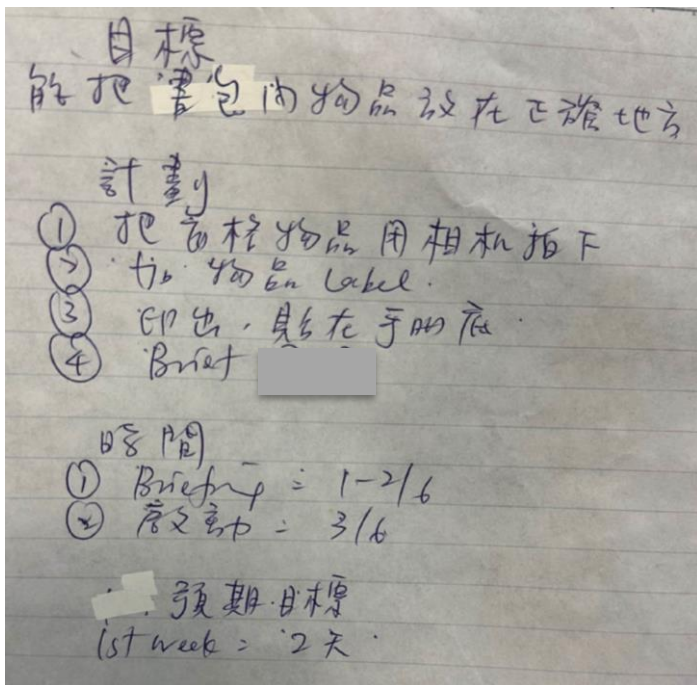 目標
能把書包內物品放在正確地方
計劃
① 把高格物品用相机拍下
② 加物品 label.
③ 印出,貼在手冊底.
④ Brief
時間
① Briefing = 1-2/6
② 啟動 = 3/6
預期目標
1st week = 2天